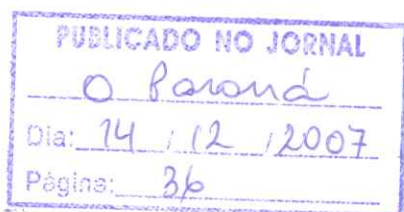 PUBLICADO NO JORNAL
O Paraná
Dia: 14 / 12 / 2007
Página: 36